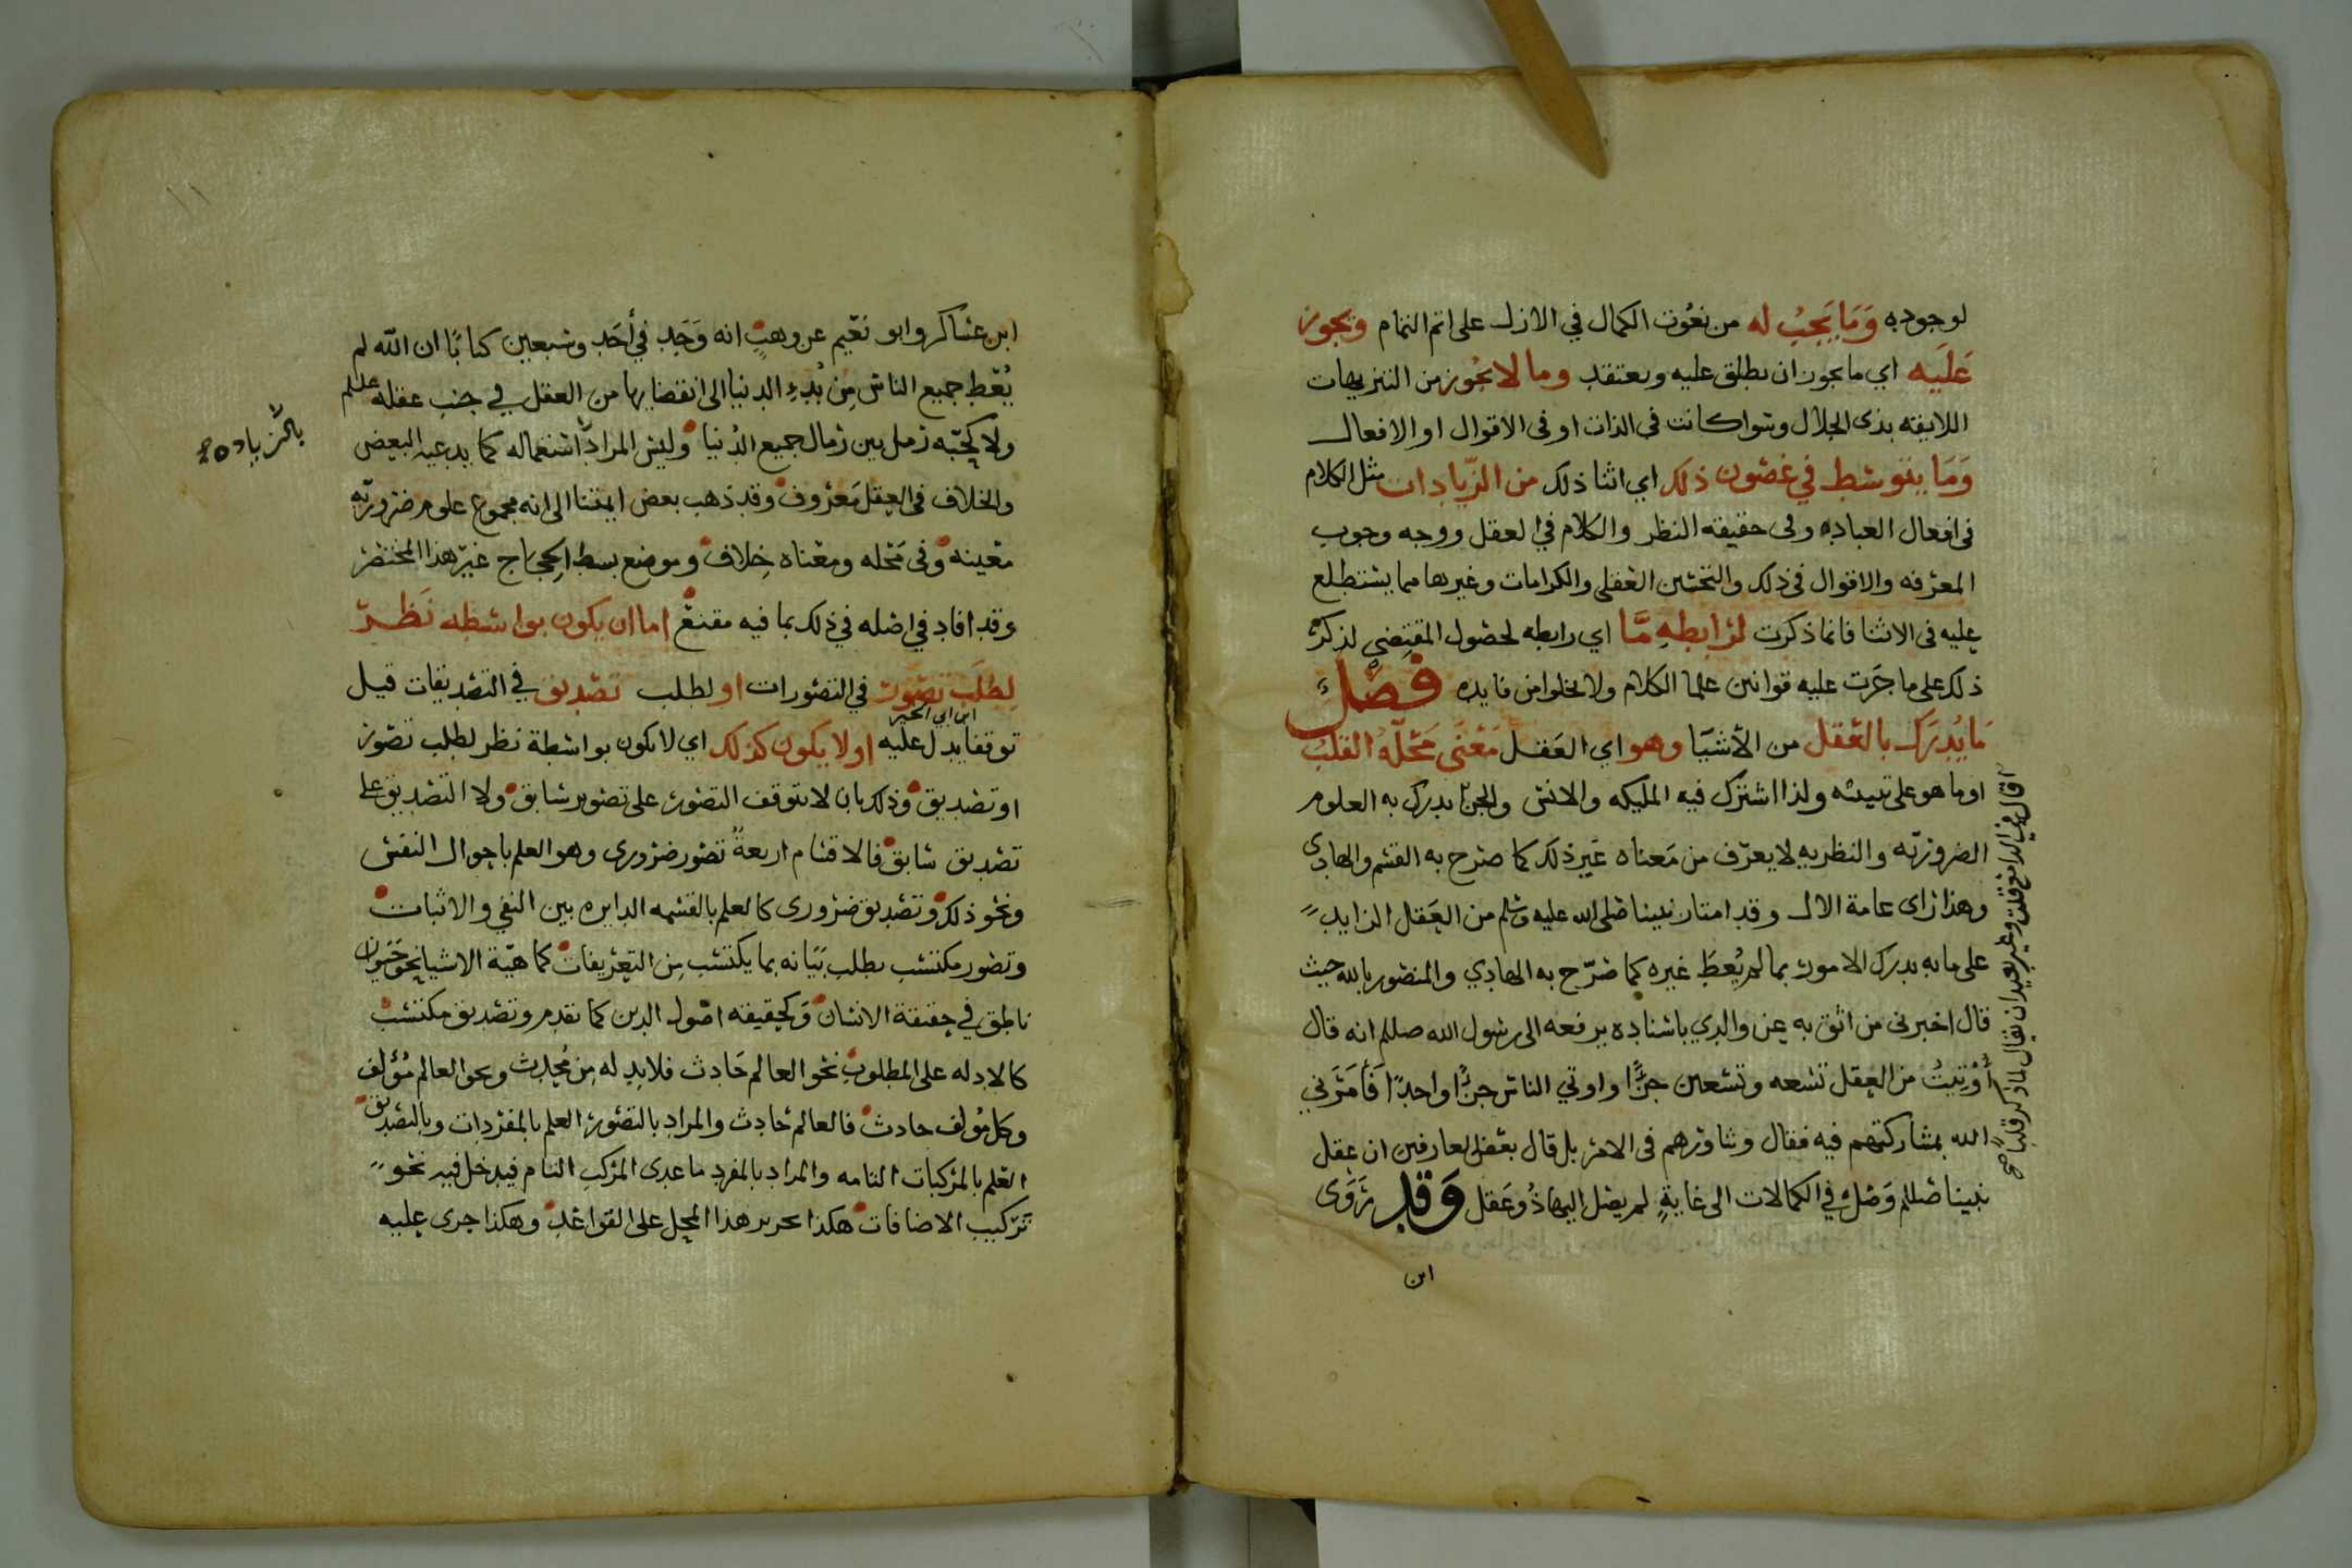 لوجوده وَمَا يَجِبُ له من نعُوت الكمال في الازل على اتم التمام ويجوز
عَلَيه اي ما يجوز ان يطلق عليه ويعتقد وما لا يجُوز من التنزيهات
اللايقه بذى الجلال وسوا كانت في الذات او فى الاقوال او الافعال
وَمَا يتوسط في غضون ذلك اي اثنا ذلك من الزّيادات مثل الكلام
فى افعال العباد وفى حقيقه النظر والكلام في العقل ووجه وجوب
المعرفه والاقوال فى ذلك والتحسين العقلى والكرامات وغيرها مما يستطلع
عليه فى الاثنا فانما ذكرت لرَابطهٍ مَّا اي رابطه لحصول المقتضي لذكر
ذلك على ما جرَت عليه قوانين علما الكلام ولا يخلوا من فايده فصل
مَا يُدرَك بالعَقل من الأشيَا وهو اي العَقل مَعْنًى مَحَلّهُ القلبُ
او ما هو على بنيته ولذا اشترك فيه المليكه والانس والجن يدرك به العلوم
الضروريّه والنظريه لا يعرَف من مَعناه غير ذلك كما صرح به القسم والهادى
وهذا راى عامة الال وقد امتاز نبينا صلى الله عليه وسلم من العَقل الزايد
على ما به يدرك الامور بما لم يُعطَ غيره كما صَرّح به الهادي والمنصور بالله حيث
قال اخبرنى من اثق به عن والدي باسناده يرفعه الى رسول الله صللم انه قال
أُوْتِيتُ من العقل تسعه وتسعين جزءًا واوتي الناس جزءًا واحدًا فَأمَرَني
الله بمشاركتهم فيه فقال وشاورهم فى الامر بل قال بعض العارفين ان عقل
نبينا صللم وَصَل في الكمالات الى غايةٍ لم يصل اليها ذُو عَقل وَقد رَوَى
ابن
ابن عسَاكر وابو نعَيم عن وهبٍ انه وَجَد في أحَد وسَبعين كتابًا ان الله لم
يُعْطِ جميع الناس مِن بُدءِ الدنيا الى انقضايها من العقل في جنب عقله علالم
ولا كحبّه رمل بين رمال جميع الدُنيا وليس المراد استعماله كما يدعيه البعض
بالزياده
والخلاف فى العقل مَعرُوف وقد ذهب بعض ايمتنا الى انه مجموع علوم ضروريّه
معَينه وفى مَحله ومعْناه خِلاف وموضع بسط الحجاج غير هذا المختصر
وقد افاد في اصله في ذلك بما فيه مقنع اما ان يكون بواسطه نَظرٍ
لطلَبِ تصَور في التصورات او لطلب تصديق في التصديقات قيل
ابن ابي الخير
توقفا يدل عليه او لا يكون كذلك اي لا يكون بواسطة نظر لطلب تصور
او تصديق وذلك بان لا يتوقف التصور على تصور سابق ولا التصديق على
تصديق سابق فالاقسَام اربعةٌ تصور ضرورى وهو العلم باحوال النفس
ونحو ذلك وتصديق ضرورى كالعلم بالقسمه الدايره بين النفي والاثبات
وتصور مكتسب يطلب بَيَانه بما يكتسب مِن التعريفات كماهيّة الاشيا نحو حَيَوان
ناطق في حقيقة الانسَان وَكحقيقه اصول الدين كما تقدم وتصديق مكتسب
كالادله على المطلوب نحو العالم حَادث فلا بد له مِن مُحدِث ونحو العالم مُؤلف
وكل مُؤلف حادث فالعالم حَادث والمراد بالتصور العلم بالمفرَدات وبالتصديق
العلم بالمرَكبات التامه والمراد بالمفرد ما عدى المرَكب التام فيدخل فيه نحو
ترَكيب الاضافات هكذا تحرير هذا المحل على القواعد وهكذا جرى عليه